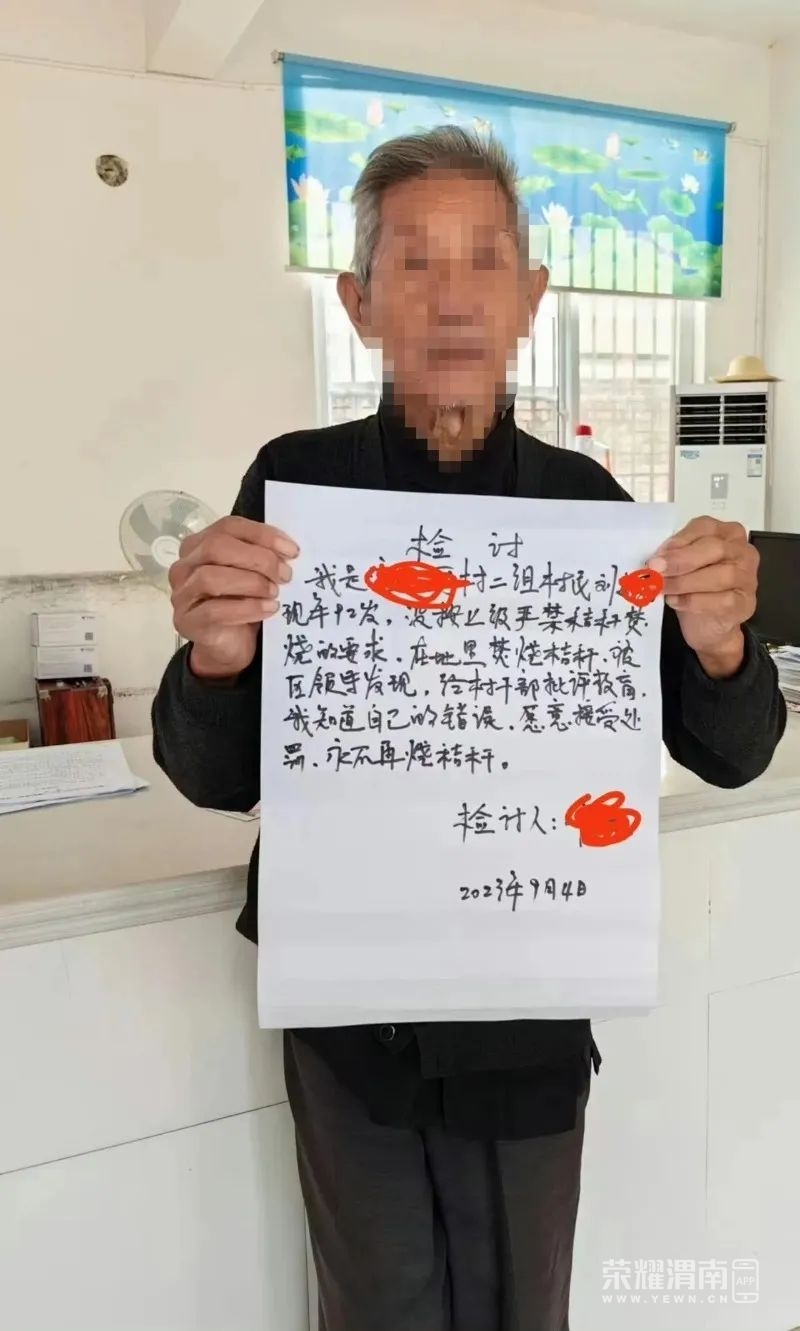 检 讨
我是村二组村民刘
现年92岁，没按上级严禁秸秆焚
烧的要求，在地里焚烧秸秆，被
区领导发现，给村干部批评教育，
我知道自己的错误，愿意接受处
罚，永不再烧秸秆。
检讨人：
2023年9月4日
荣耀渭南 APP
WWW.YEWN.CN